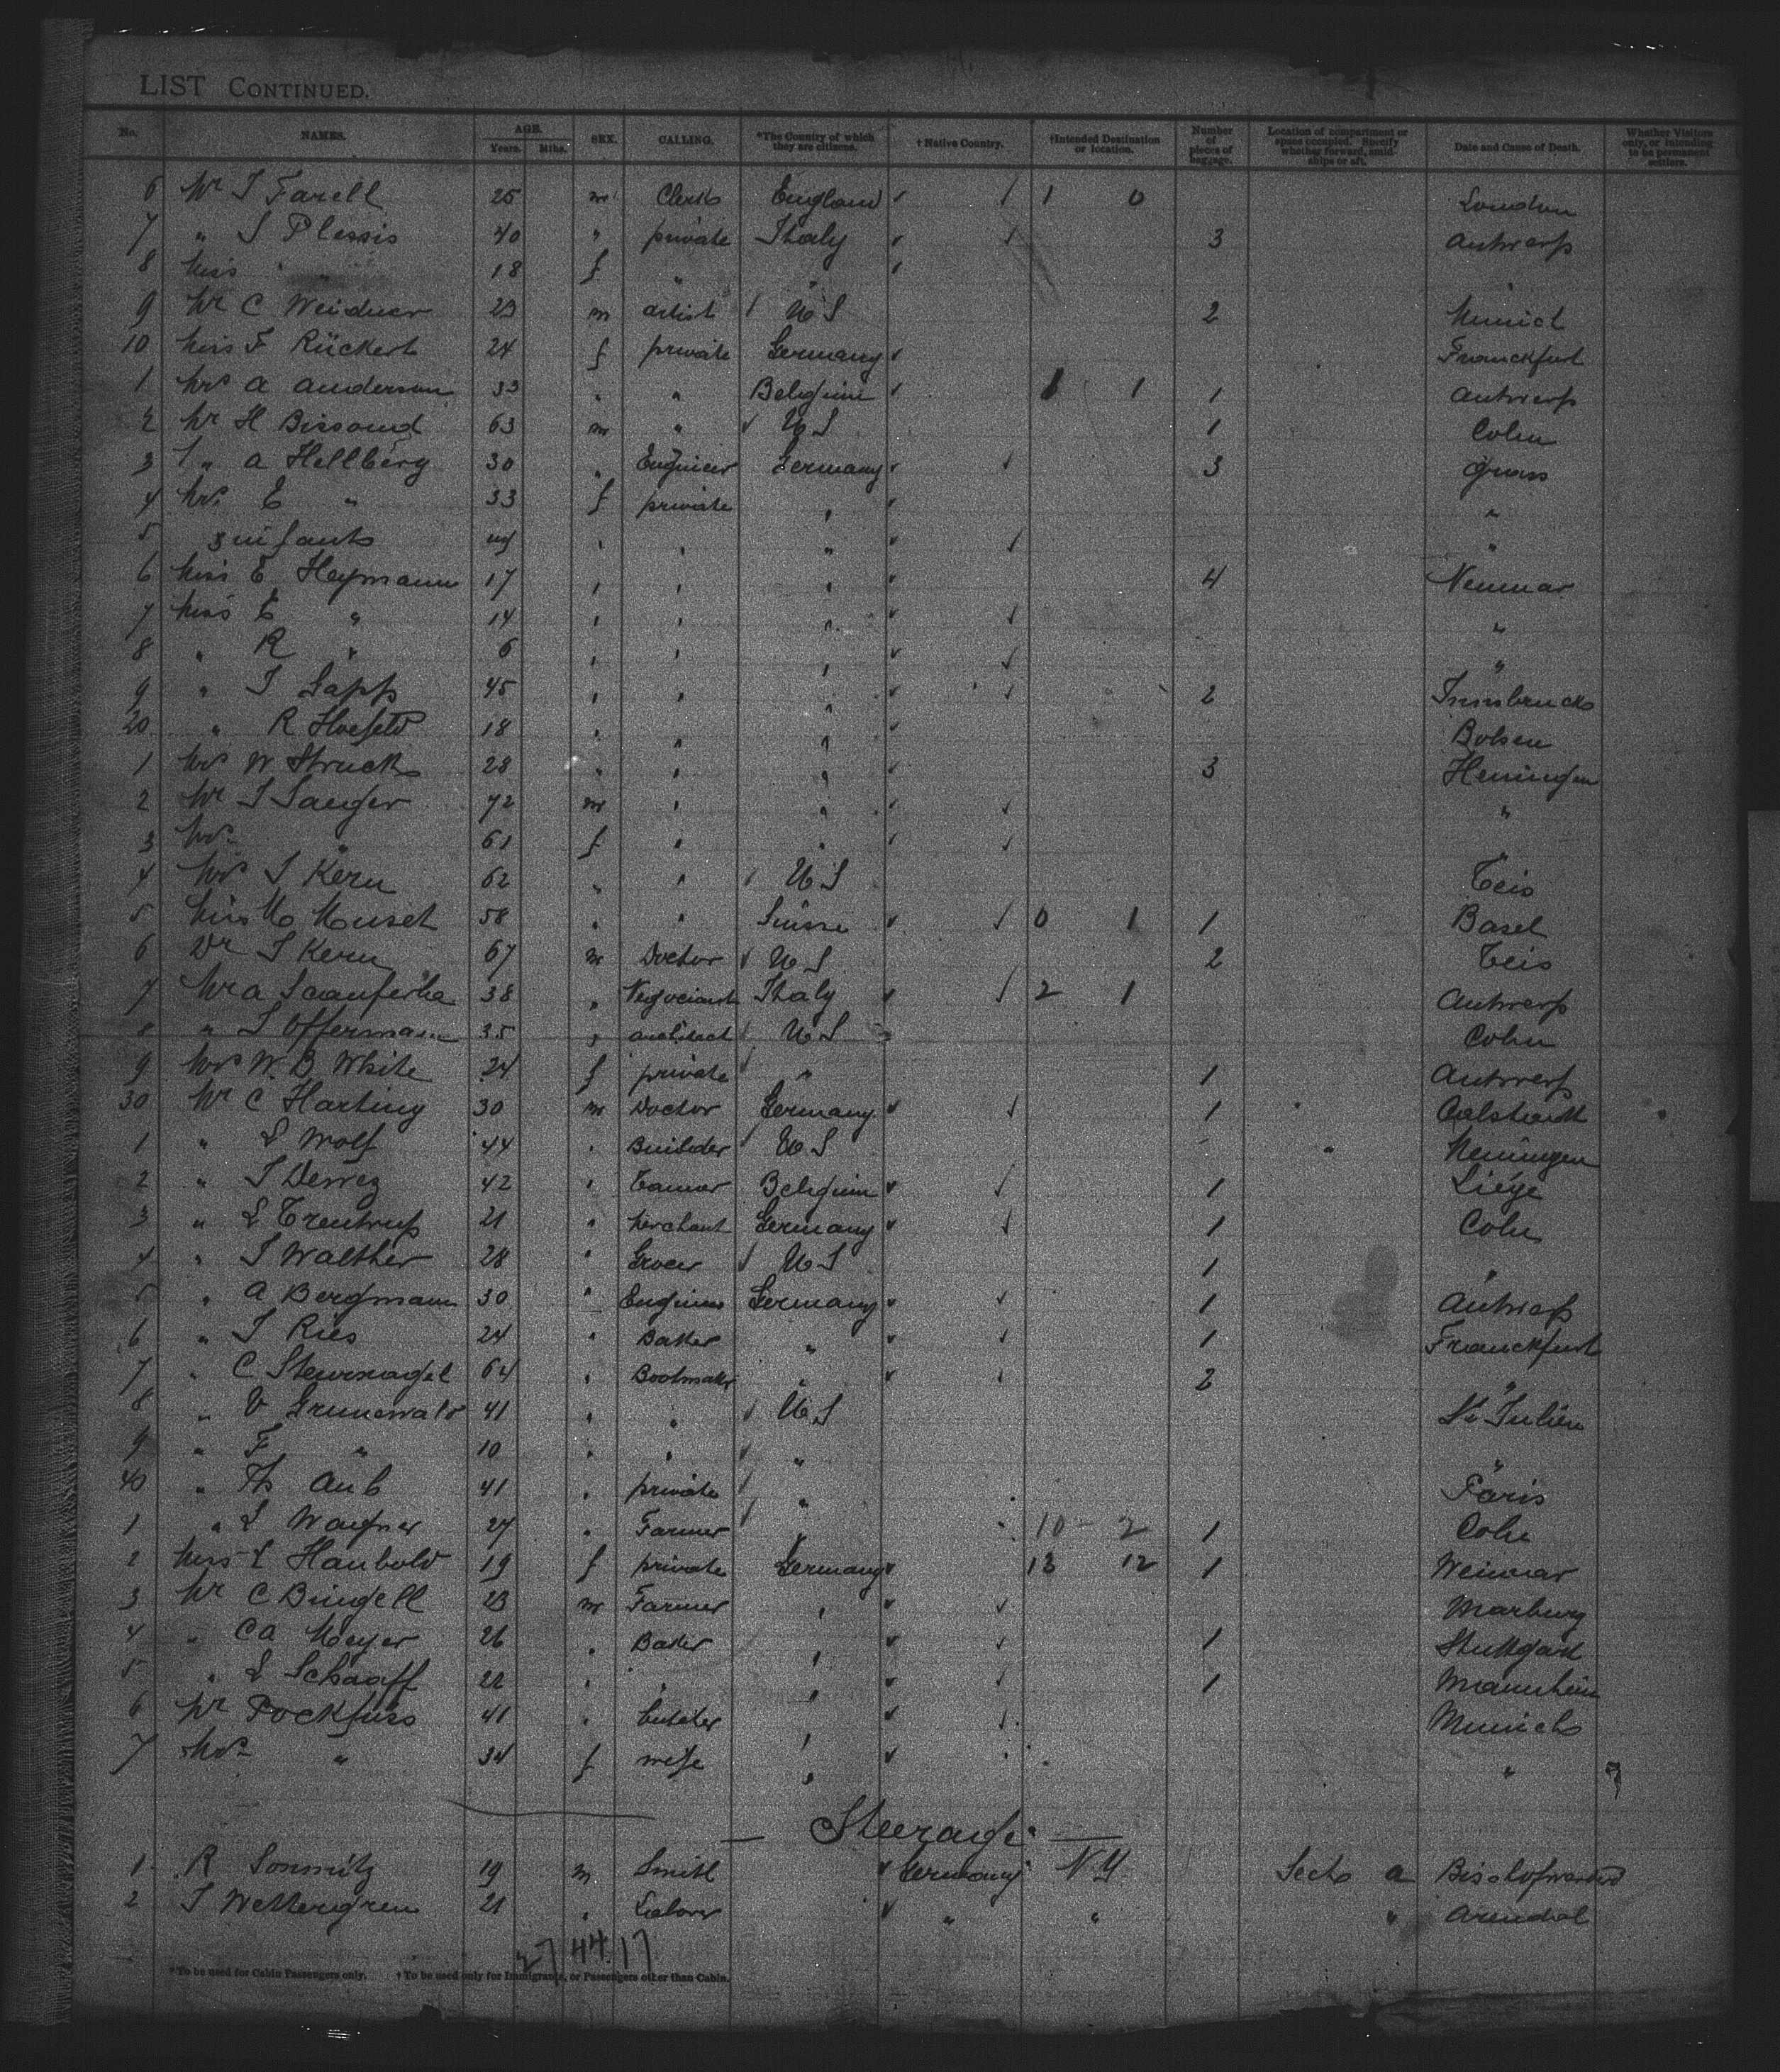 LIST CONTINUED.
No. NAMES. AGE. Years. Mths. SEX. CALLING. *The Country of which they are citizens. † Native Country. †Intended Destination or location. Number of pieces of baggage. Location of compartment or space occupied. Specify whether forward, amid-ships or aft. Date and Cause of Death. Whether Visitors only, or intending to be permanent settlers.
6 Mr J Farell 25 m Clerk England 1 0 London
7 " J Plessis 40 " private Ithaly 3 Antwerp
8 Miss " 18 f " " "
9 Mr C Weidner 23 m artist US 2 Munich
10 Miss F Rückert 24 f private Germany Franckfurt
1 Mrs A Anderson 33 " " Belgium 1 1 1 Antwerp
2 Mr H Bissound 63 m " US 1 Coln
3 " A Hellberg 30 " Engineer Germany 3
4 Mrs E " 33 f private " "
5 3 infants " " " "
6 Miss E Heymann 17 " " " 4
7 Miss E " 14 " " " "
8 " R " 6 " " " "
9 " J Sapp 45 " " " 2 Innsbruck
20 " R Hoefeld 18 " " " Bolsen
1 Mrs W Struck 28 " " " 3
2 Mr J Saeger 72 m " " "
3 Mrs " 61 f " " "
4 Mrs J Kern 62 " " US Teis
5 Miss M Muset 58 " " Suisse 0 1 1 Basel
6 Dr J Kern 67 m Doctor US 2 Teis
7 Mr A 38 " Negociant Ithaly 2 1 Antwerp
8 " J Offermann 35 " architect US Coln
9 Mrs W. B White 24 f private " 1 Antwerp
30 Mr C Harting 30 m Doctor Germany 1
1 " L Wolf 44 " Builder US Meiningen
2 " J Dewez 42 " Tanner Belgium 1 Liége
3 " L Trentrup 21 " Merchant Germany 1 Coln
4 " J Walther 28 " Grocer US 1 "
5 " A Bergmann 30 " Engineer Germany 1 Antwerp
6 " J Ries 24 " Baker " 1 Franckfurt
7 " C Steurnagel 64 " Bootmaker " 2 "
8 " V Grunewald 41 " " US St Julien
9 " F " 10 " " " "
40 " Th Aub 41 " private " Paris
1 " L Wagner 27 " Farmer " 10 2 1 Coln
2 Miss L Haubold 19 f private Germany 13 12 1 Weimar
3 Mr C Bingell 23 m Farmer " Marburg
4 " CA Meyer 26 " Baker " 1 Stuttgart
5 " L Schaaff 22 " " " 1 Mannheim
6 Mr Pockfuss 41 " butcher " Munich
7 Mrs " 34 f wife " "
— Steerage —
1 R Sonnnitz 19 m Smith Germany N.Y. Sect a
2 J Wettengren 21 " Labover " " " Arendal
27 44 17
*To be used for Cabin Passengers only. †To be used only for Immigrants, or Passengers other than Cabin.